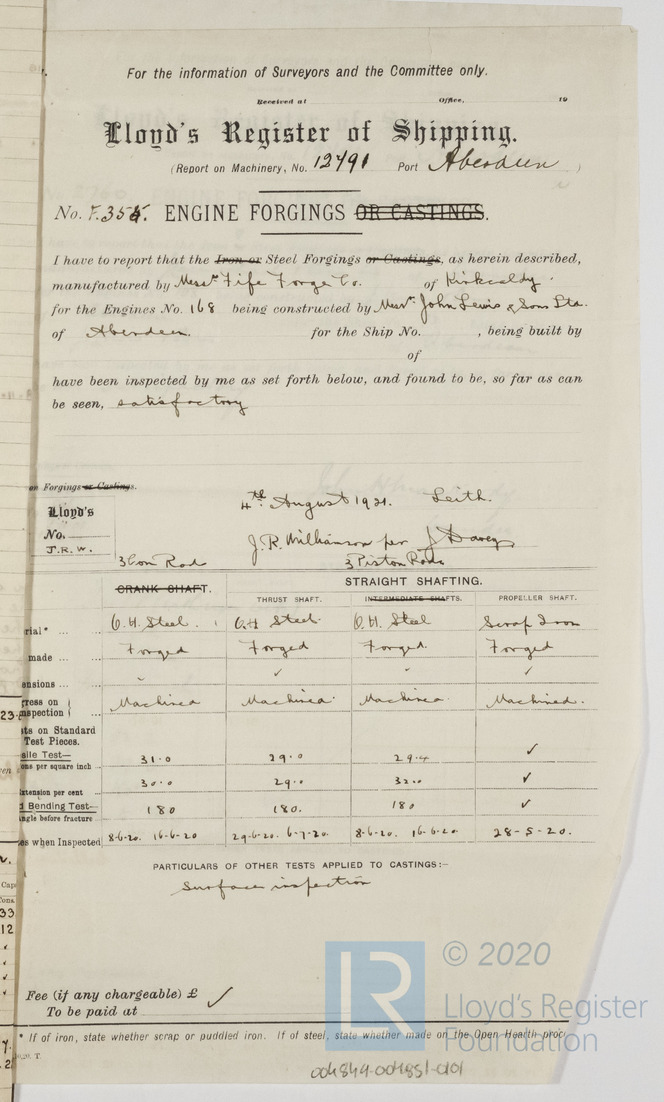 For the information of Surveyors and the Committee only.
Received at Office, 19
Lloyd's Register of Shipping.
(Report on Machinery, No. 12491 Port Aberdeen )
No. F.355. ENGINE FORGINGS OR CASTINGS.
I have to report that the Iron or Steel Forgings or Castings, as herein described,
manufactured by Messrs Fife Forge Co. of Kirkcaldy.
for the Engines No. 168 being constructed by Messrs John Lewis & Sons Ltd.
of Aberdeen. for the Ship No. , being built by
of
have been inspected by me as set forth below, and found to be, so far as can
be seen, satisfactory
on Forgings or Castings.
4th August 1921. Leith.
Lloyd's
No.
J.R.W.
J.R. Williamson per J Davey
3 Con Rods 3 Piston Rods
CRANK SHAFT. STRAIGHT SHAFTING.
THRUST SHAFT. INTERMEDIATE SHAFTS. PROPELLER SHAFT.
rial* ... O.H. Steel. O.H. Steel. O.H. Steel Scrap Iron
made ... Forged Forged Forged. Forged
ensions ... ✓ ✓ ✓ ✓
ress on
nspection ... Machined Machined. Machined Machined.
23.
ts on Standard
Test Pieces.
sile Test—
ons per square inch 31.0 29.0 29.4 ✓
xtension per cent 30.0 29.0 32.0 ✓
d Bending Test—
ngle before fracture 180 180. 180 ✓
es when Inspected 8-6-20. 16-6-20 29-6-20. 6-7-20. 8-6-20. 16-6-20. 28-5-20.
PARTICULARS OF OTHER TESTS APPLIED TO CASTINGS:—
Surface inspection
Cap
Tons.
33
12
© 2020
LR
Lloyd's Register
Foundation
Fee (if any chargeable) £ ✓
To be paid at
* If of iron, state whether scrap or puddled iron. If of steel, state whether made on the Open Hearth proc
T.
004849-004851-0101